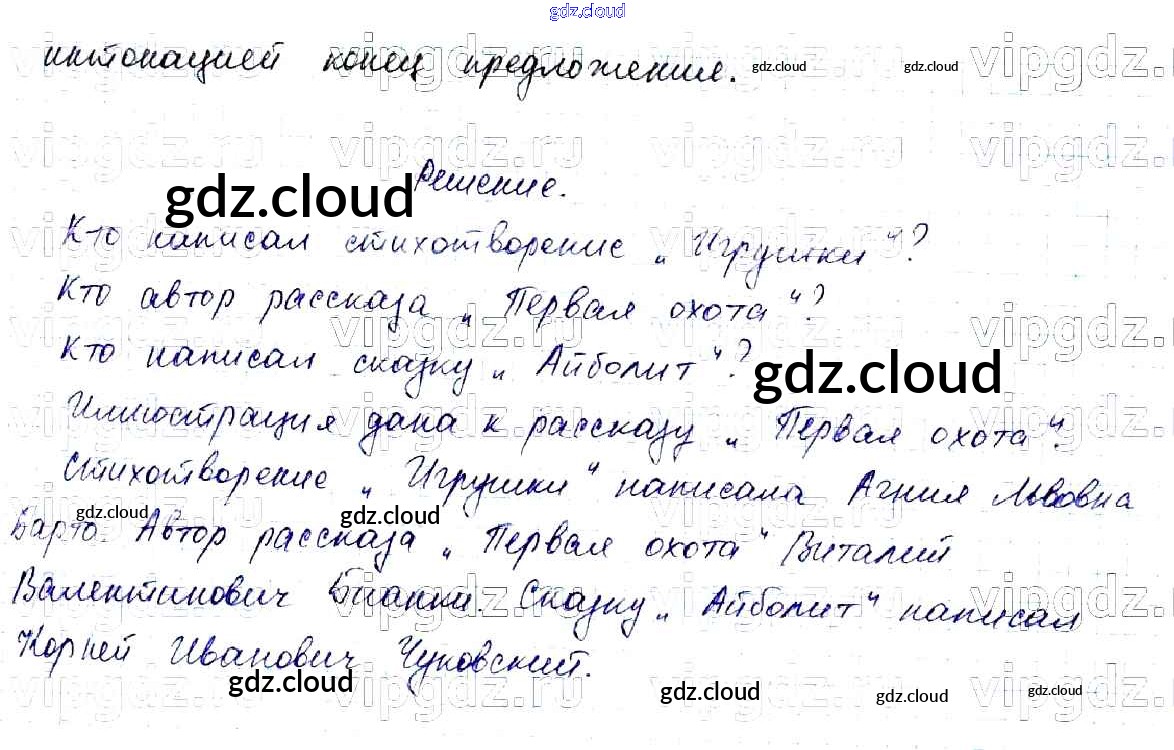 gdz.cloud
интонацией конец предложения. gdz.cloud gdz.cloud vipgdz.ru
vipgdz.ru vipgdz.ru vipgdz.ru vipgdz.
Решение.
gdz.cloud
Кто написал стихотворение „Игрушки“?
Кто автор рассказа „Первая охота“?
Кто написал сказку „Айболит“?
gdz.cloud
Иллюстрация дана к рассказу „Первая охота“.
Стихотворение „Игрушки“ написала Агния Львовна
gdz.cloud gdz.cloud
Барто. Автор рассказа „Первая охота“ Виталий
Валентинович Бианки. Сказку „Айболит“ написал
Корней Иванович Чуковский.
gdz.cloud gdz.cloud gdz.cloud gdz.cloud